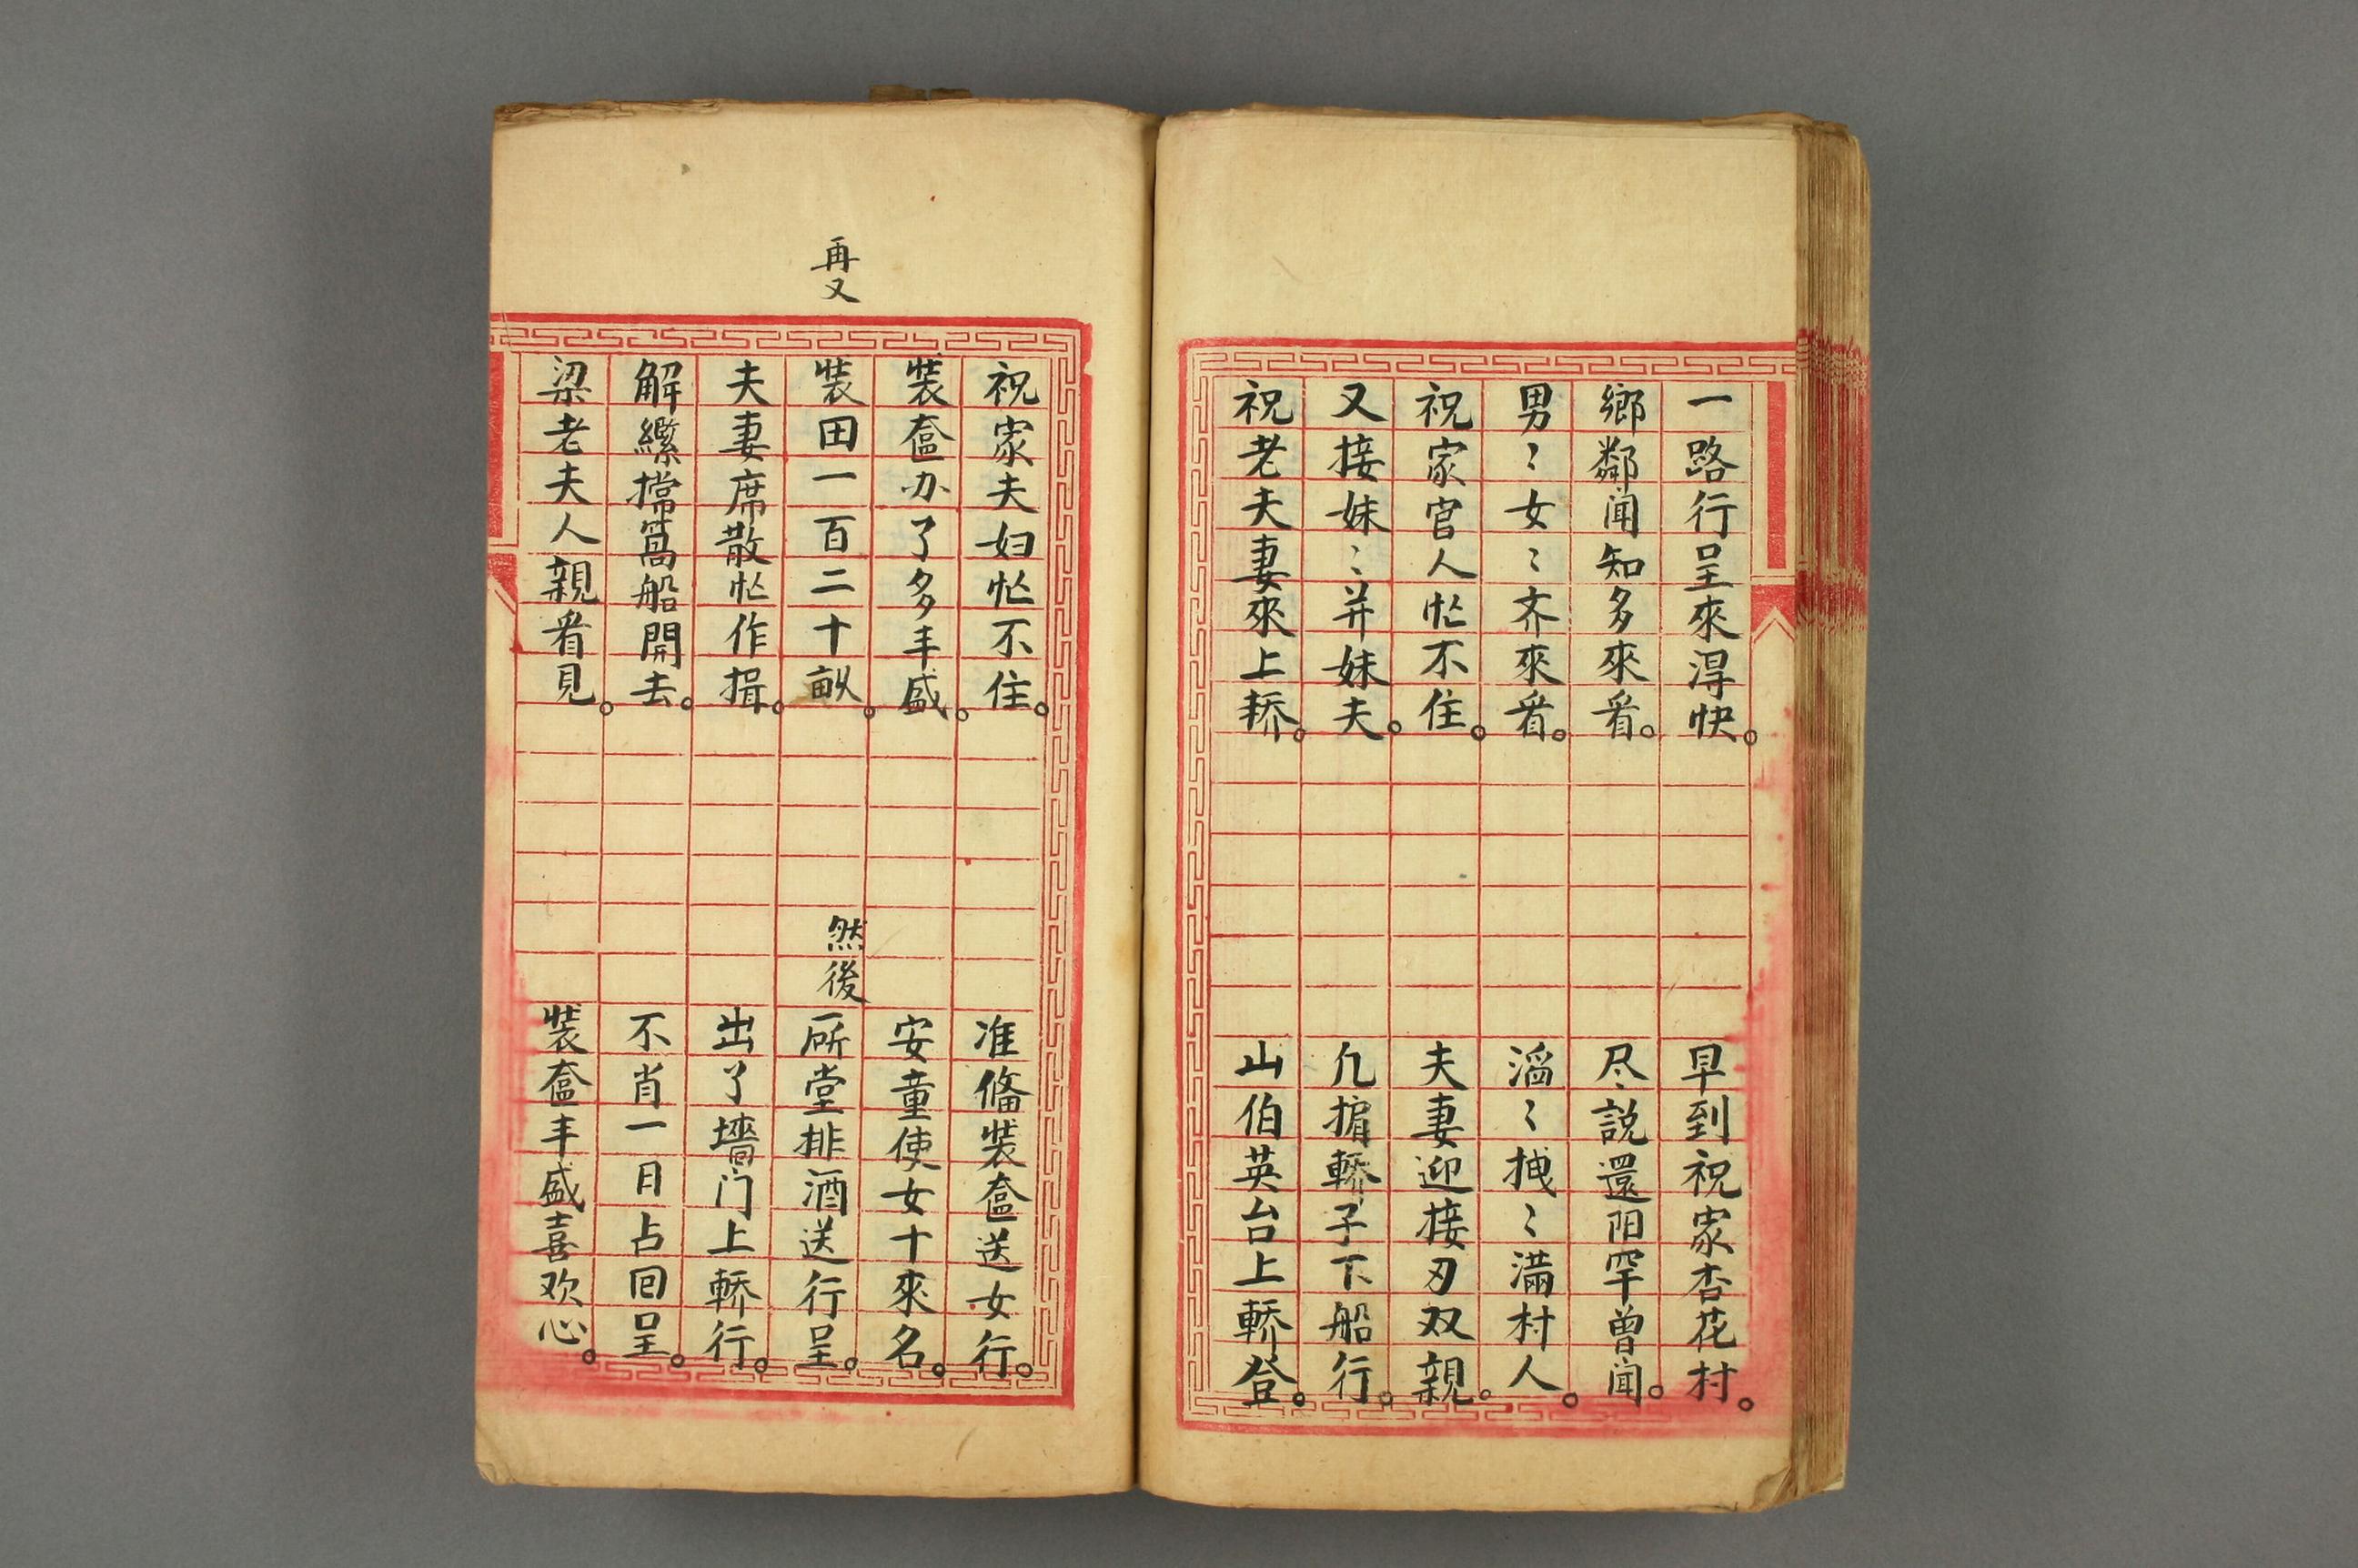 一路行呈來淂快。早到祝家杏花村。
鄉鄰闻知多來看。尽說還阳罕曾闻。
男〻女〻齐來看。滔〻拽〻滿村人。
祝家官人忙不住。夫妻迎接刃双親。
又接妹〻并妹夫。几掮轎子下船行。
祝老夫妻來上轿。山伯英台上轎登。
祝家夫妇忙不住。准俻裝奩送女行。
裝奩办了多丰盛。安童使女十來名。
再又裝田一百二十畝。然後所堂排酒送行呈。
夫妻席散忙作揖。出了墻门上轎行。
解纜撑篙船開去。不肖一日占回呈。
梁老夫人親看見。裝奩丰盛喜欢心。